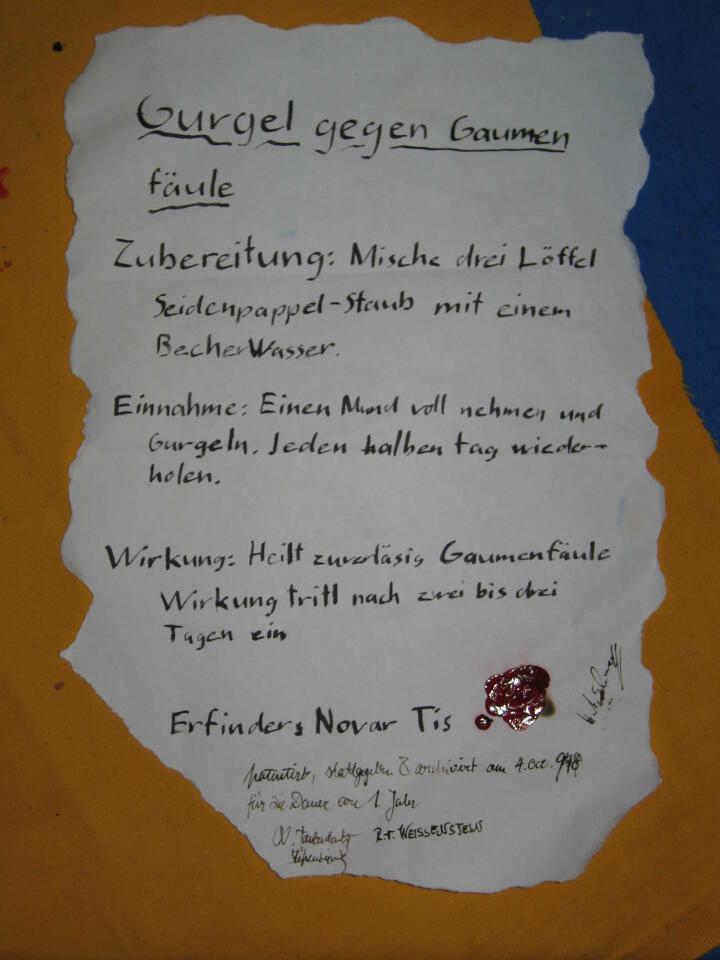 Gurgel gegen Gaumen
fäule
Zubereitung: Mische drei Löffel
Seidenpappel-Staub mit einem
Becher Wasser.
Einnahme: Einen Mund voll nehmen und
Gurgeln. Jeden halben tag wieder-
holen.
Wirkung: Heilt zuverläsig Gaumenfäule
Wirkung tritt nach zwei bis drei
Tagen ein
Erfinder: Novar Tis
patentiert, stattgegeben & archiviert am 4. Oct.
für die Dauer von 1 Jahr
R.t. WEISSENSTEIN